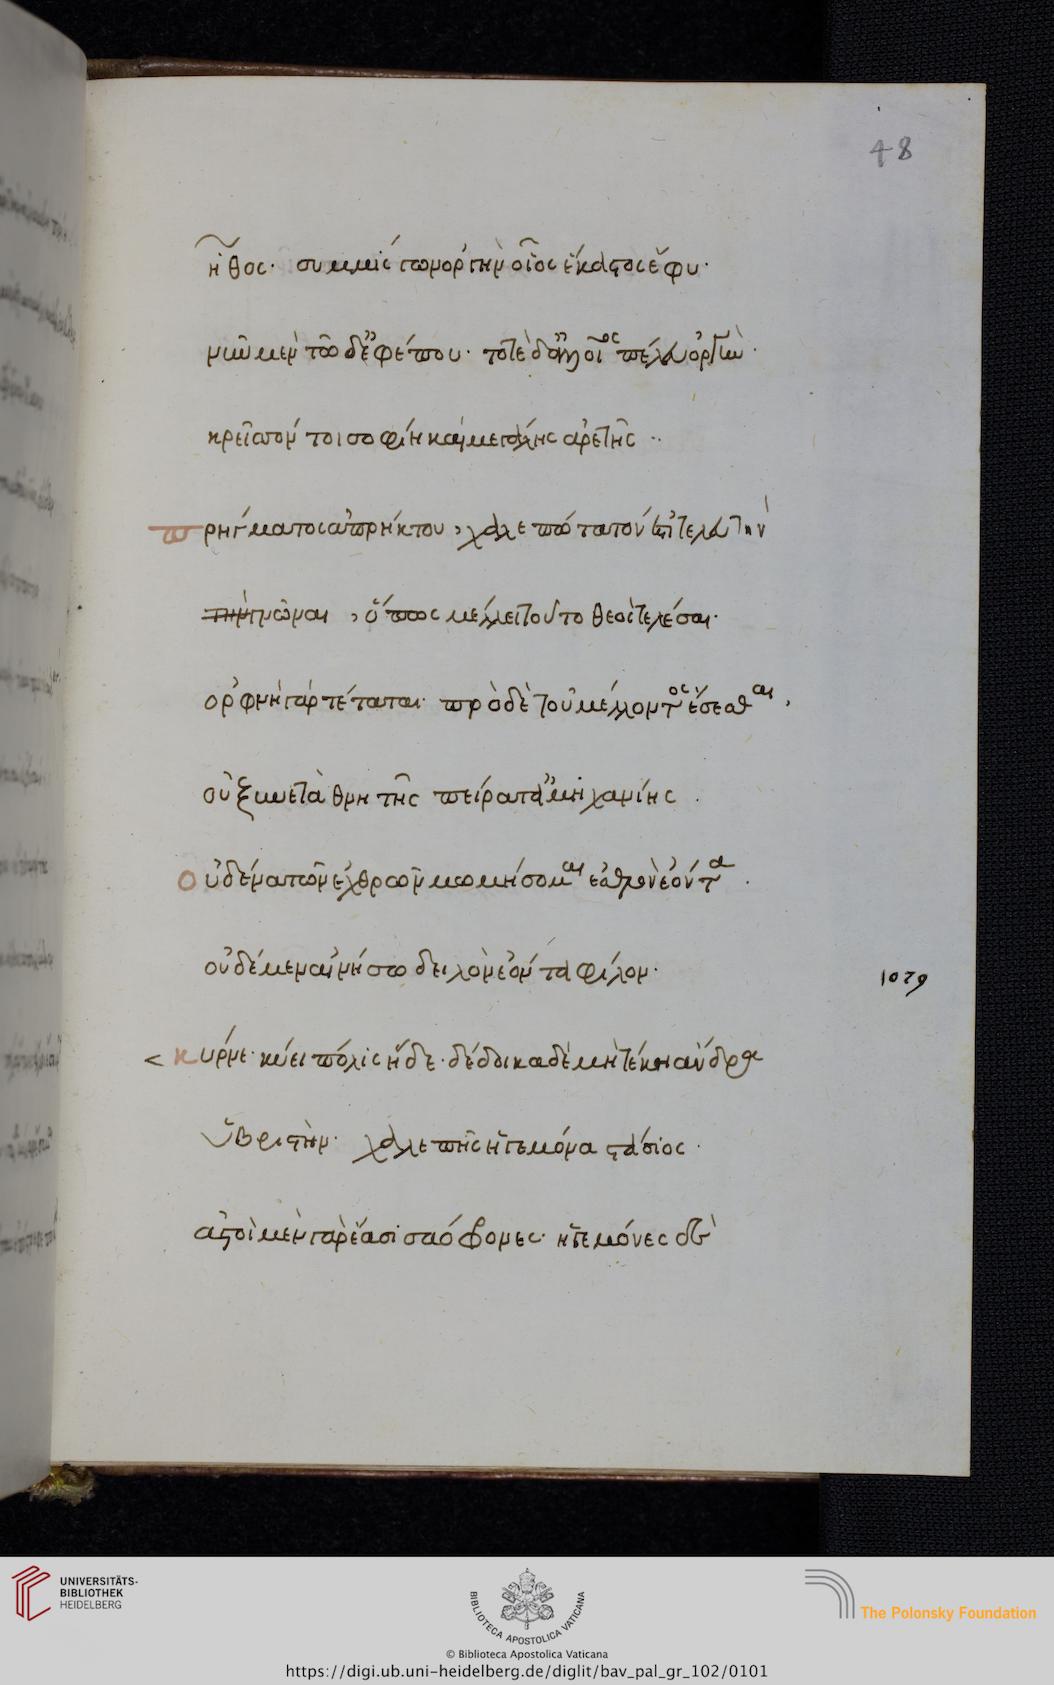 48
ἦθος· συμμίσγων ὀργὴν οἷος ἕκαστος ἔφυ·
νῦν μὲν τῶδ' ἐφέπου· τότε δ' ἀλλοῖος πέλευ ὀργὴν·
κρεῖσσόν τοι σοφίη καὶ μεγάλης ἀρετῆς ··
πρήγματος ἀπρήκτου, χαλεπώτατόν ἐστι τελευτὴν
γνῶναι, ὅπως μέλλει τοῦτο θεὸς τελέσαι·
ὀρφνὴ γάρ τέταται· πρὸ δὲ τοῦ μέλλοντος ἔσεσθαι,
οὐ ξυνετὰ θνητῆς πείρατ' ἀμηχανίης .
οὐδένα τῶν ἐχθρῶν μωμήσομαι ἐσθλὸν ἐόντα .
οὐδέ μεν αἰνήσω δειλὸν ἐόντα φίλον·
1079
< κύρνε· κύει πόλις ἥδε· δέδοικα δὲ μὴ τέκῃ ἄνδρα
ὑβριστὴν· χαλεπῆς ἡγεμόνα στάσιος ·
ἀστοὶ μὲν γὰρ ἔασι σαόφρονες· ἡγεμόνες δὲ
UNIVERSITÄTS-
BIBLIOTHEK
HEIDELBERG
BIBLIOTECA APOSTOLICA VATICANA
The Polonsky Foundation
© Biblioteca Apostolica Vaticana
https://digi.ub.uni-heidelberg.de/diglit/bav_pal_gr_102/0101